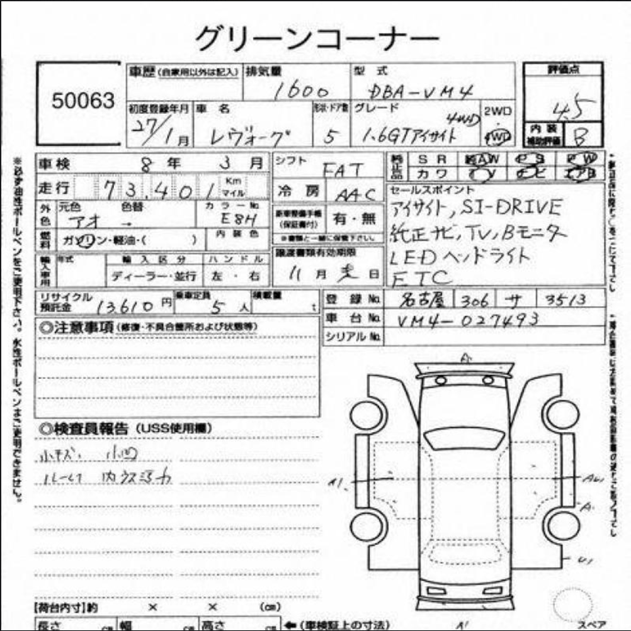 グリーンコーナー
50063
車歴 (自家用以外は記入) 排気量 型式 評価点
1600 DBA-VM4 4.5
初度登録年月 車名 形状・ドア数 グレード 2WD
27/1月 レヴォーグ 5 1.6GTアイサイト 4WD 4WD
内装補助評価 B
車検 8年 3月 シフト FAT 純正品 SR 革 AW PS PW
カワ TV ナビ エアB
走行 73,401 Km マイル 冷房 AAC セールスポイント
外色 元色 色替 カラーNo.
アオ → E8H
新車整備手帳 (保証書付) 有・無
※書類と一緒に保管下さい。
アイサイト, SI-DRIVE
純正ナビ, TV, Bモニタ
LEDヘッドライト
ETC
燃料 ガソリン・軽油・( ) 内装色
譲渡書類有効期限
11月 末日
輸入車用 年式 輸入区分 ハンドル
ディーラー・並行 左・右
リサイクル預託金 13,610円 乗車定員 5人 積載量 t
登録No. 名古屋 306 サ 3513
車台No. VM4-027493
シリアルNo.
◎注意事項 (修復・不具合箇所および状態等)
◎検査員報告 (USS使用欄)
小キズ、小凹
ルーム内
A1
A
U1
A1
【荷台内寸】約 × × (cm)
長さ cm 幅 cm 高さ cm ←(車検証上の寸法)
スペア
※必ず油性ボールペンをご使用下さい。水性ボールペンはご使用できません。